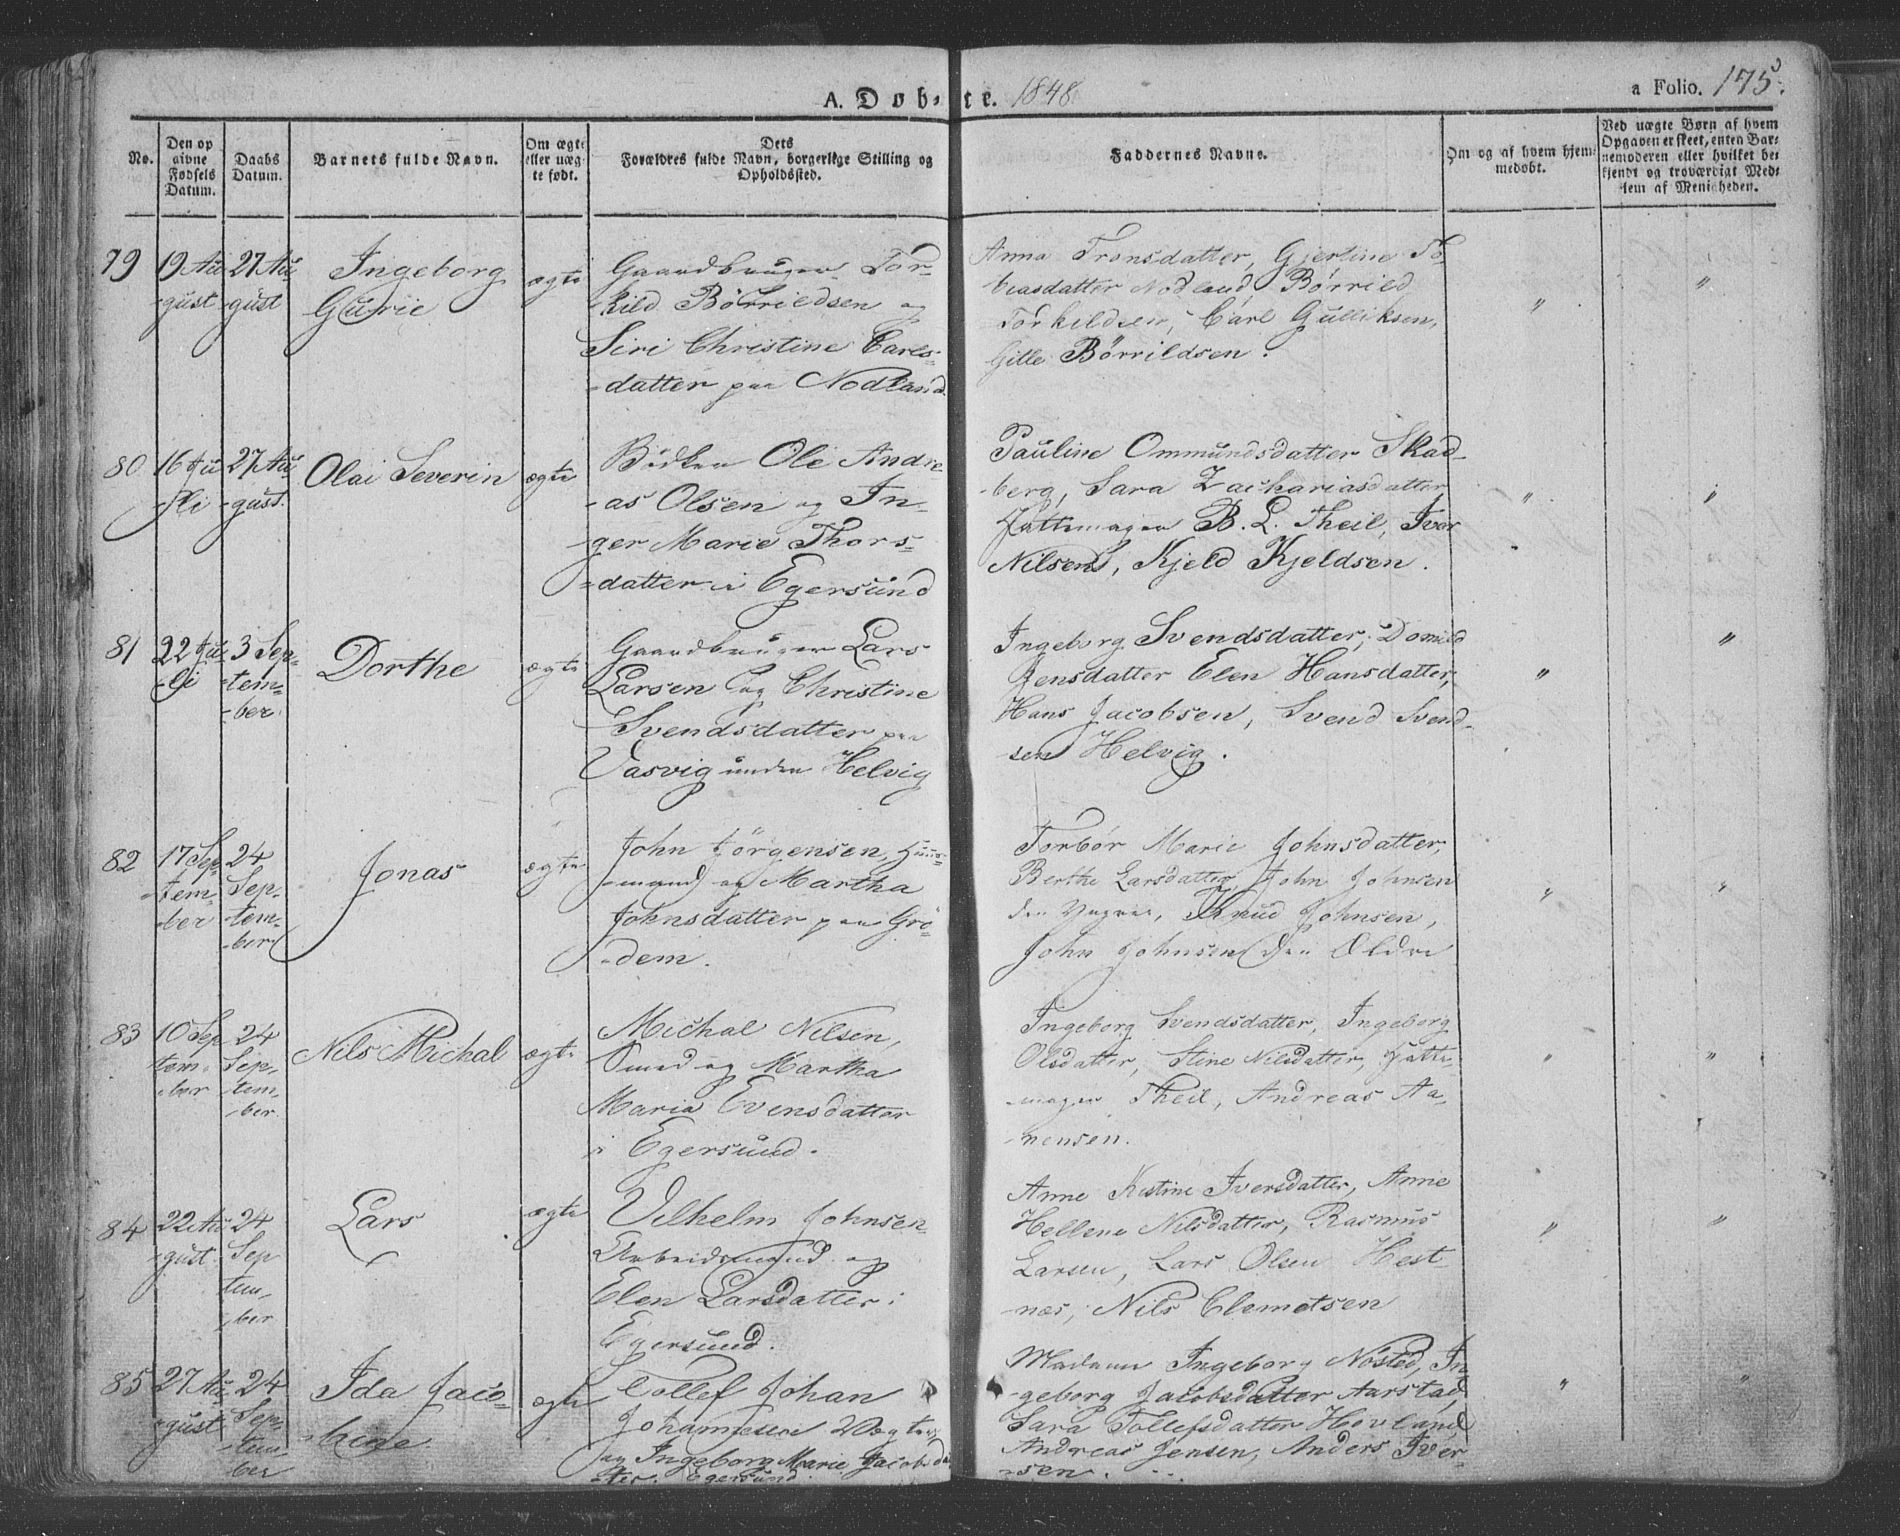 A. Døbte. 1848
a Folio. 175.
No.
Den op
givne
Fødsels
Datum.
Daabs
Datum.
Barnets fulde Navn.
Om ægte
eller uæg-
te født.
Dets
Forældres fulde Navn, borgerlige Stilling og
Opholdssted.
Faddernes Navne.
Om og af hvem hjem-
medøbt.
Ved uægte Børn af hvem
Opgaven er skeet, enten Bar-
nemoderen eller hvilket be-
kjendt og troværdigt Med-
lem af Menigheden.
79
19 Au
-gust
27 Au
-gust
Ingeborg
Gurie
ægte
Gaardbruger Tor-
-kild Börrildsen og
Siri Christine Carls-
-datter paa Nodland
Anna Tronsdatter, Gjertine To-
biasdatter Nodland, Börrild
Torkildsen, Carl Gulliksen,
Gitle Börrildsen.
"
"
80
16 Ju
-li
27 Au
-gust.
Olai Severin
ægte
Bödker Ole Andre
-as Olsen og In-
-ger Marie Thors-
-datter i Egersund
Pauline Ommundsdatter Skad-
-berg, Sara Zachariasdatter
Hattemager B. L. Theil, Iver
Nilsen, Kjeld Kjeldsen.
"
"
81
22 Ju
-li
3 Sep-
-tem-
-ber.
Dorthe
ægte
Gaardbruger Lars
Larsen og Christine
Svendsdatter paa
Vasvig under Helvig
Ingeborg Svendsdatter,
Jensdatter Elen Hansdatter,
Hans Jacobsen, Svend Svend-
sen Helvig.
"
"
82
17 Sep
-tem-
-ber
24
Sep-
-tem-
-ber
Jonas
ægte
John Jörgensen, Huus-
-mand og Martha
Johnsdatter paa Grö-
-dem.
Torbör Marie Johnsdatter,
Berthe Larsdatter, John Johnsen
den Yngre, Knud Johnsen,
John Johnsen den Ældre
"
"
83
10 Sep
-tem-
-ber
24
Sep-
-tem-
-ber.
Nils Michal
ægte
Michal Nilsen,
Smed og Martha
Maria Evensdatter
i Egersund.
Ingeborg Svendsdatter, Ingeborg
Olsdatter, Stine Nilsdatter, Hatte-
-mager Theil, Andreas Aa-
-nensen.
"
"
84
22 Au
-gust.
24
Sep
tem-
-ber
Lars
ægte
Vilhelm Johnsen
Arbeidsmand og
Elen Larsdatter i
Egersund.
Anne Kistine Iversdatter, Anne
Hellene Nilsdatter, Rasmus
Larsen, Lars Olsen Hest-
næs, Nils Clemetsen
"
"
85
27 Au
-gust
24
Sep-
-tem-
ber
Ida Jaco-
-bine
ægte
Tollef Johan
Johannesen Vægter
og Ingeborg Marie Jacobsdat
-ter. Egersund.
Madame Ingeborg Nösted, In-
-geborg Jacobsdatter Aarstad,
Sara Tollefsdatter Hovland,
Andreas Jensen, Anders Iver-
-sen.
"
"